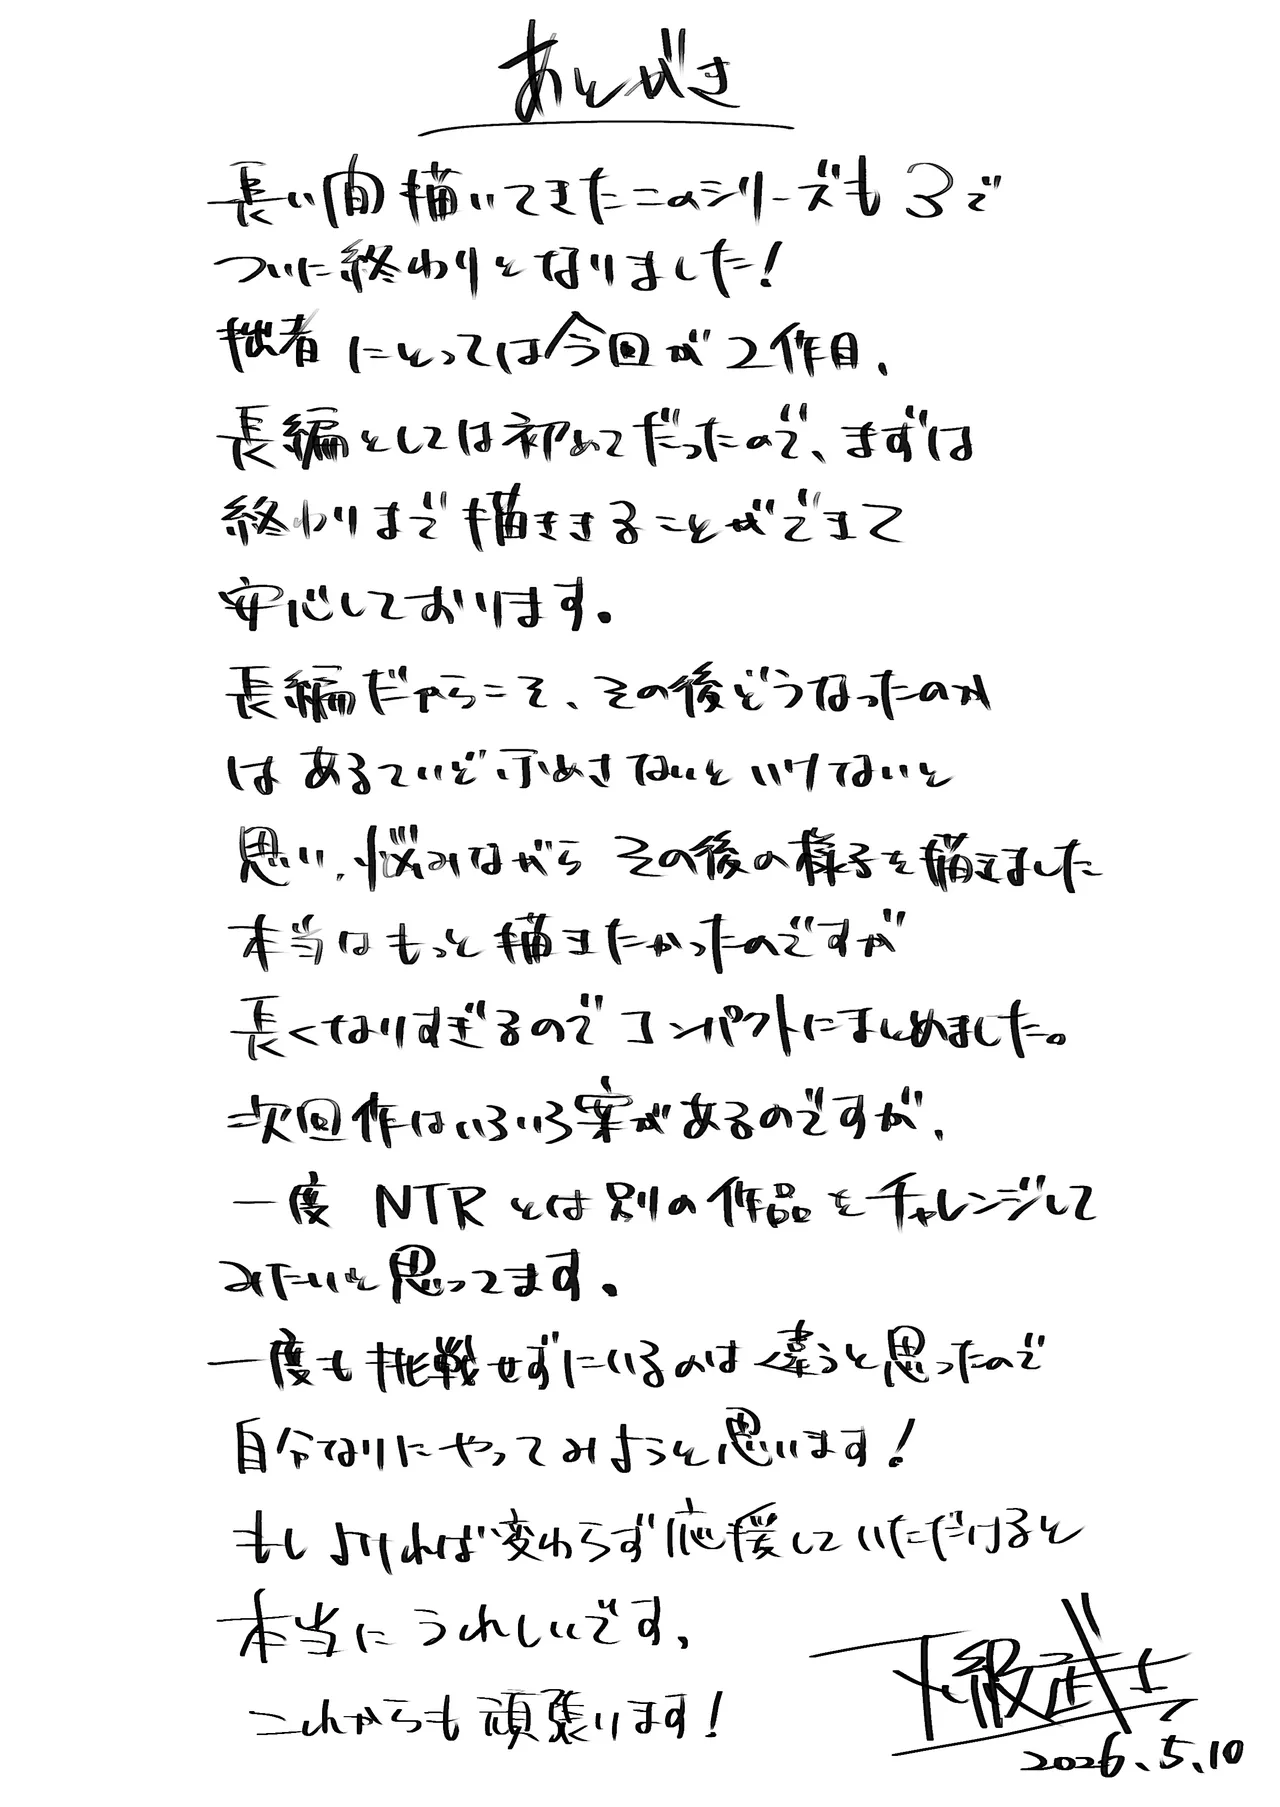 あとがき
長い間描いてきたこのシリーズも3で
ついに終わりとなりました!
拙者にとっては今回が2作目、
長編としては初めてだったので、まずは
終わりまで描ききることができて
安心しております。
長編だからこそ、その後どうなったのか
はあるていど示めさないといけないと
思い、悩みながらその後の様子を描きました
本当はもっと描きたかったのですが
長くなりすぎるのでコンパクトにまとめました。
次回作はいろいろ案があるのですが、
一度 NTRとは別の作品をチャレンジして
みたいと思ってます。
一度も挑戦せずにいるのは違うと思ったので
自分なりにやってみようと思います!
もしよければ変わらず応援していただけると
本当にうれしいです、
これからも頑張います!
下級武士
2026.5.10